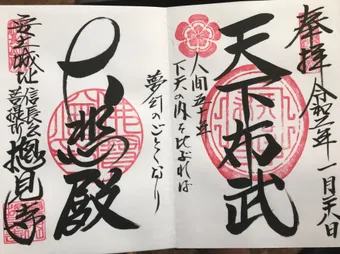 奉拝
令和二年一月
天下布武
人間五十年
下天の内を比ぶれば
夢幻のごとくなり
殿
安土城址
信長公
菩提所
摠見寺